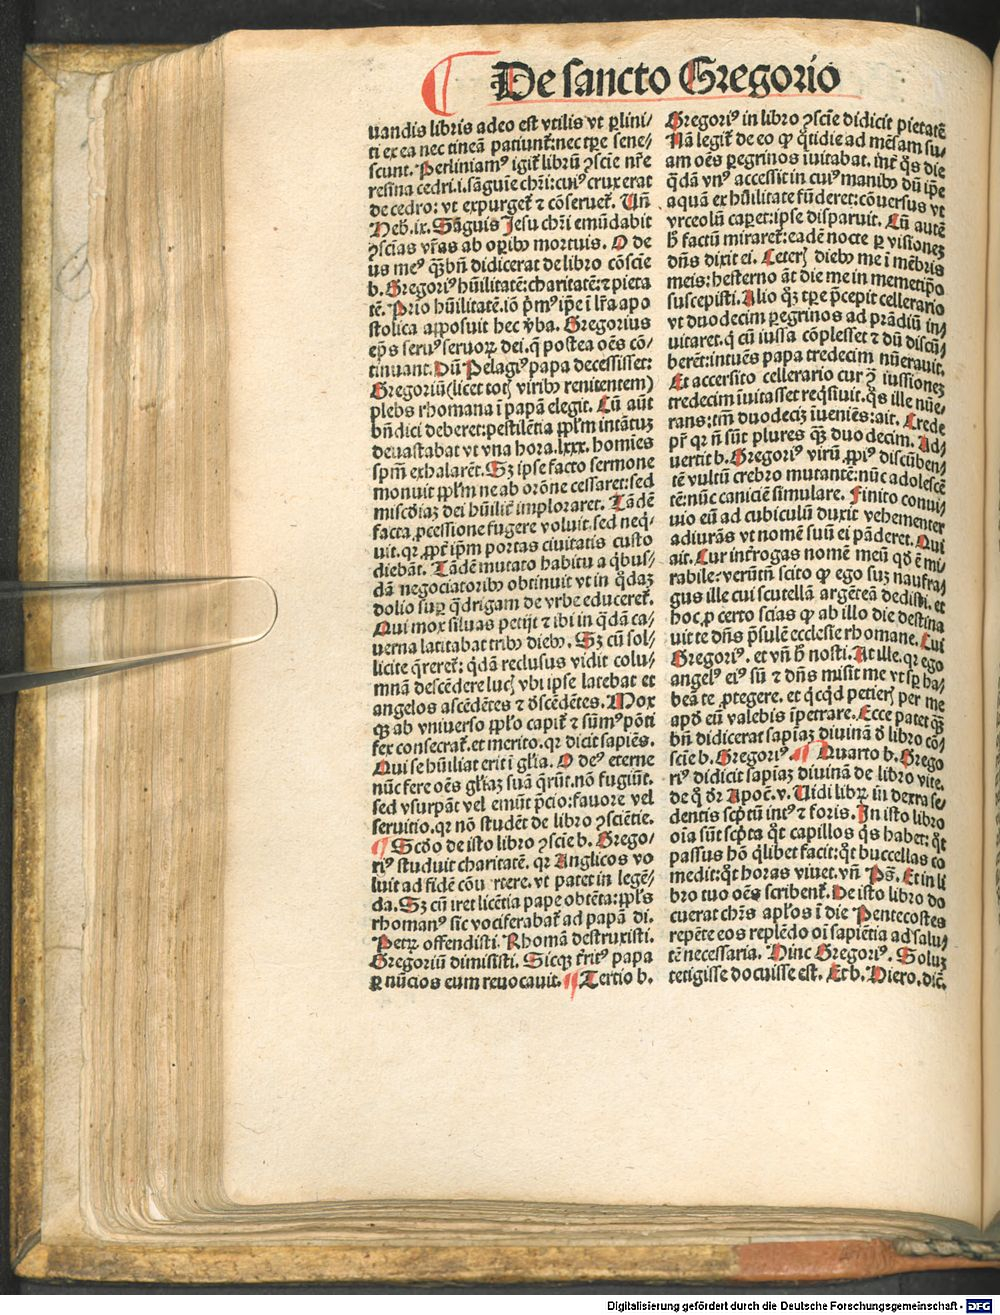 De sancto Gregorio
uandis libris adeo est vtilis vt ꝑlini-
ti ex ea nec tineā patiunt᷑: nec tꝑe sene-
scunt. Perliniamꝰ igit᷑ librū ꝯsciē nr̄e
resina cedri .i. sāguīe chr̄i: cuiꝰ crux erat
de cedro: vt expurget᷑ ⁊ cōseruet᷑. Vn̄
Heb. ix. Sāguis Jesu chr̄i emūdabit
ꝯscīas vr̄as ab oꝑibꝰ mortuis. O de
us meꝰ q̄ꝫ bn̄ didicerat de libro cōscīe
b. Gregoriꝰ hūilitatē: charitatē: ⁊ pieta
tē. Prio hūilitatē. iō pͥmꝰ ip̄e ī lr̄a apo
stolica apposuit hec v̓ba. Gregorius
ep̄s seruꝰ seruoꝝ dei. q̄ postea oēs cō-
tinuant. Dū Pelagiꝰ papa decessisset:
Gregoriū (licet totꝭ viribꝰ renitentem)
plebs rhomana ī papā elegit. Cū aūt
bn̄dici deberet: pestilētia pp̄lm intātuꝫ
deuastabat vt vna hora .lxxx. homīes
spm̄ exhalarēt. Sꝫ ipse facto sermone
monuit pp̄lm ne ab orōne cessaret: sed
miscd̓iaꝫ dei hūilit᷑ imploraret. Tādē
facta ꝓcessione fugere voluit. sed neqͥ-
uit. qꝛ ꝓpt᷑ ip̄m portas ciuitatis custo
diebāt. Tādē mutato habitu a qͥbus-
dā negociatoribꝰ obtinuit vt in q̄daꝫ
dolio suꝑ q̄drigam de vrbe educeret᷑.
Qui mox siluas petijt ⁊ ibi in q̄dā ca-
uerna latitabat tribꝰ diebꝰ. Sꝫ cū sol-
licite q̄reret᷑: q̄dā reclusus vidit colu-
mnā descēdere lucꝭ vbi ipse latebat et
angelos ascēdētes ⁊ d̓scēdētes. Mox
qꝫ ab vniuerso pp̄lo capit᷑ ⁊ sūmꝰ pōti
fex consecrat᷑. et merito. qꝛ dicit sapiēs.
Qui se hūiliat erit ī gl̄ia. O deꝰ eterne
nūc fere oēs gl̄iaꝫ suā q̄rūt. nō fugiūt.
sed vsurpāt vel emūt p̄cio: fauore vel
seruitio. qꝛ nō studēt de libro ꝯsciētie.
¶ Scd̓o de isto libro ꝯsciē b. Grego-
riꝰ studuit charitatē. qꝛ Anglicos vo
luit ad fidē cōu rtere. vt patet in legē-
da. Sꝫ cū iret licētia pape obtēta: pp̄ls
rhomanꝰ sic vociferabat᷑ ad papā di.
Petꝝ offendisti. Rhomā destruxisti.
Gregoriū dimisisti. Sicqꝫ t̓ritꝰ papa
ꝑ nūcios eum reuocauit. ¶ Tertio b.
Gregoriꝰ in libro ꝯsciē didicit pietatē
Nā legit᷑ de eo ꝙ q̄tidie ad mēsam su-
am oēs ꝑegrinos īuitabat. int᷑ q̄s die
q̄dā vnꝰ accessit in cuiꝰ manibꝰ dū ip̄e
aquā ex hūilitate fūderet: cōuersus vt
vrceolū caꝑet: ipse disparuit. Cū autē
h̓ factū miraret᷑: eadē nocte ꝑ visionez
dn̄s dixit ei. Ceterꝭ diebꝰ me ī mēbris
meis: hesterno āt die me in memetip̄o
suscepisti. Alio qͦꝫ tꝑe p̄cepit cellerario
vt duodecim ꝑegrinos ad prādiū in-
uitaret. q̇ cū iussa cōplesset ⁊ dū discū-
berēt: intuēs papa tredecim nūerauit.
Et accersito cellerario cur ꝯ̄ iussionez
tredecim īuitasset reqͥsiuit. qͦs ille nūe-
rans: tm̄ duodeciꝫ īueniēs: ait. Crede
pr̄ qꝛ n̄ sūt plures qꝫ̄ duodecim. Ad-
uertit b. Gregoriꝰ virū ꝓpiꝰ discūben-
tē vultū crebro mutantē: nūc adolescē
tē: nūc caniciē simulare. Finito conui-
uio eū ad cubiculū duxit vehementer
adiurās vt nomē suū ei pāderet. Qui
ait. Cur int᷑rogas nomē meū qd̓ ē mi-
rabile: verūtn̄ scito ꝙ ego suꝫ naufra-
gus ille cui scutellā argēteā dedisti. et
hoc ꝓ certo scias ꝙ ab illo die destina
uit te dn̄s p̄sulē ecclesie rhomane. Cui
Gregoriꝰ. et vn̄ h̓ nosti. At ille. qꝛ ego
angelꝰ eiꝰ sū ⁊ dn̄s misit me vt sꝑ ha-
beā te ꝓtegere. et qͥcqͥd petierꝭ per me
apd̓ eū valebis īpetrare. Ecce patet qꝫ̄
bn̄ didicerat sapīaꝫ diuinā d̓ libro cō-
sciē b. Gregoriꝰ. ¶ Quarto b. Grego
riꝰ didicit sapīaꝫ diuinā de libro vite.
de qͦ d̓r Apoc̄. v. Uidi libꝝ in dextra se-
dentis scp̄tū intꝰ ⁊ foris. In isto libro
oīa sūt scp̄ta qͦt capillos qͥs habet: qͦt
passus hō qͥlibet facit: qͦt buccellas co
medit: qͦt horas viuet. vn̄ Ps̄. Et in li
bro tuo oēs scribent᷑. De isto libro do
cuerat chr̄s ap̄los ī die Pentecostes
repēte eos replēdo oī sapiētia ad salu-
tē necessaria. Hinc Gregoriꝰ. Soluꝫ
tetigisse docuisse est. Et b. Hiero. dic̄.
Digitalisierung gefördert durch die Deutsche Forschungsgemeinschaft - DFG